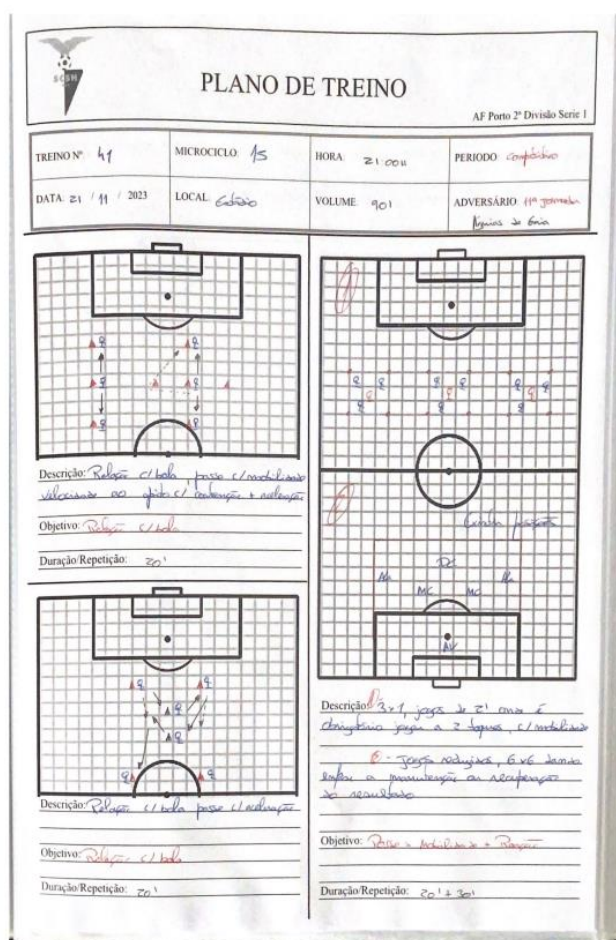 SCSH
PLANO DE TREINO
AF Porto 2ª Divisão Serie 1
TREINO Nº 41
MICROCICLO 15
HORA 21:00H
PERIODO competitivo
DATA: 21 / 11 / 2023
LOCAL Estádio
VOLUME 90'
ADVERSÁRIO 11ª Jornada
de Gaia
Descrição: Relação c/ bola, passe c/ mobilidade
velocidade ao apito c/ + aceleração
Objetivo: Relação c/ bola
Duração/Repetição: 20'
Descrição: Relação c/ bola passe c/ aceleração
Objetivo: Relação c/ bola
Duração/Repetição: 20'
1
2
DC
Ala
Ala
MC
MC
AV
Descrição: 1 3x1, jogos de 2' onde é
obrigatório jogar a 2 toques, c/ mobilidade
2 - Jogos reduzidos, 6x6 dando
enfase a manutenção ou recuperação
do resultado
Objetivo: Passe + Mobilidade +
Duração/Repetição: 20' + 30'